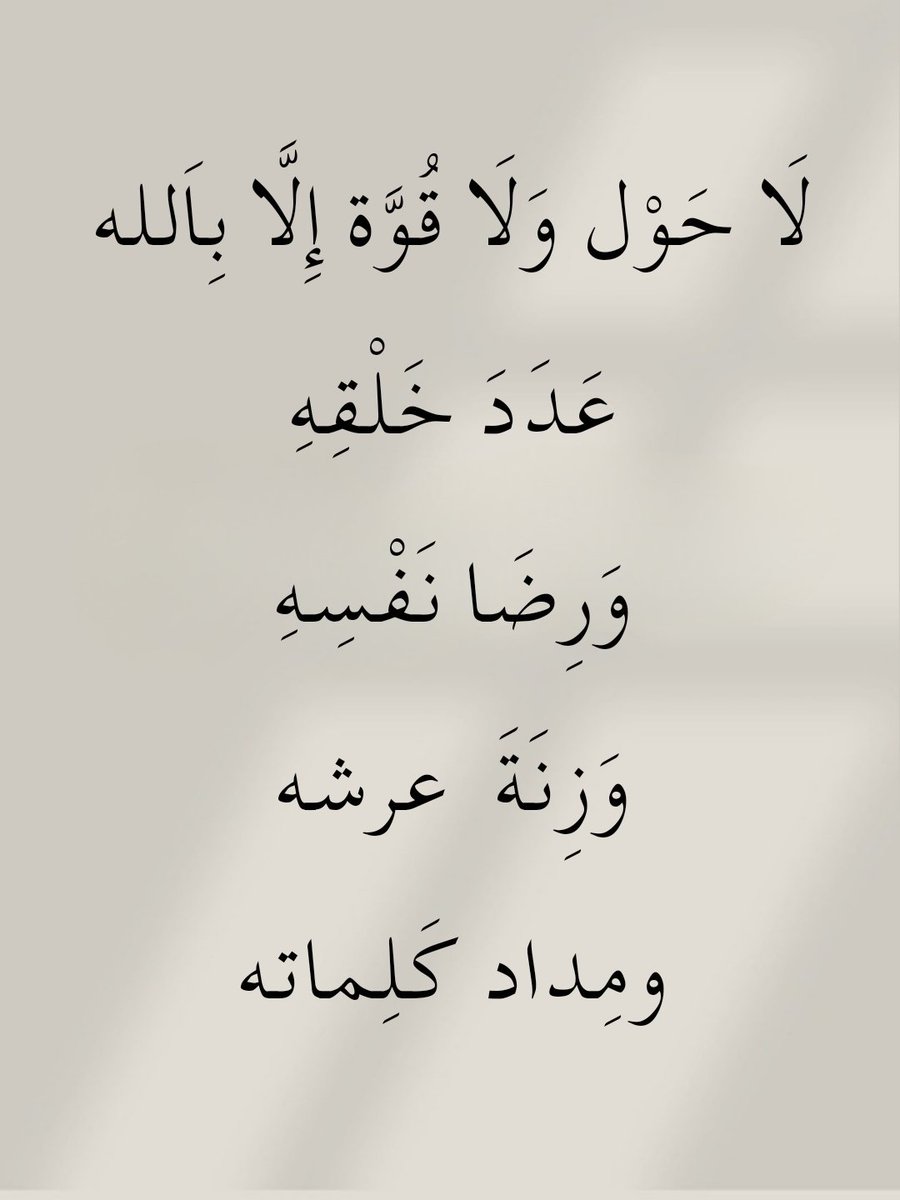 لَا حَوْل وَلَا قُوَّة إِلَّا بِاَلله
عَدَدَ خَلْقِهِ
وَرِضَا نَفْسِهِ
وَزِنَةَ عرشه
ومِداد كَلِماته